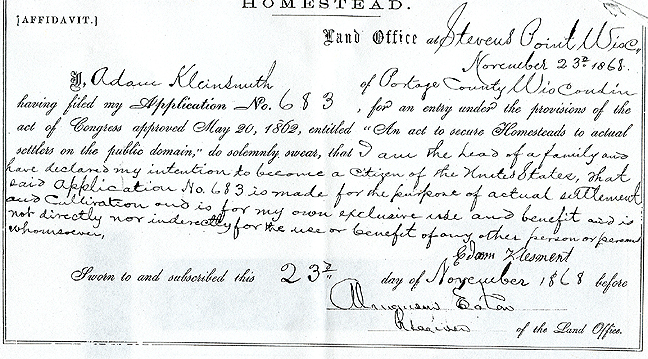 HOMESTEAD.
[AFFIDAVIT.]
Land Office at Stevens Point Wisc,
November 23d 1868.
I, Adam Kleinsmith of Portage County Wisconsin
having filed my Application No. 683, for an entry under the provisions of the
act of Congress approved May 20, 1862, entitled "An act to secure Homesteads to actual
settlers on the public domain," do solemnly swear, that I am the head of a family and
have declared my intention to become a Citizen of the United States, that
said Application No. 683 is made for the purpose of actual settlement
and Cultivation and is for my own exclusive use and benefit and is
not directly nor indirectly for the use or benefit of any other person or persons
whomsoever,
Sworn to and subscribed this 23d day of November 1868 before
Eaton
of the Land Office.